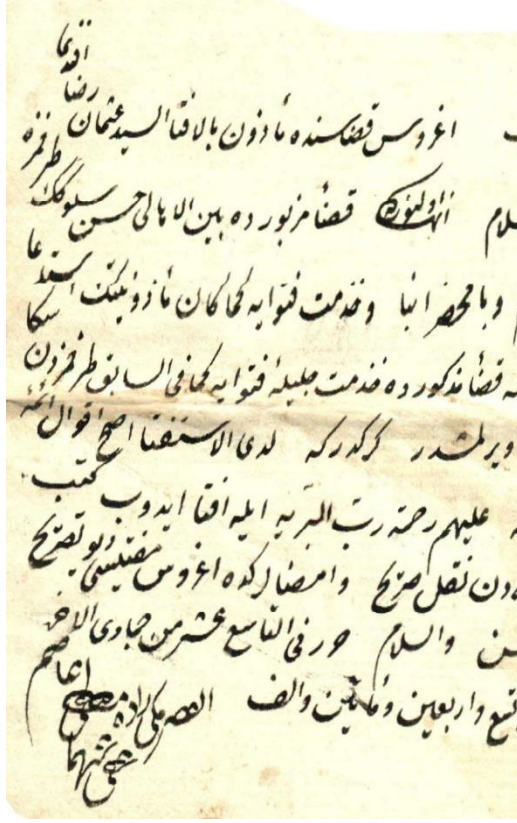 اغروس قضاسنده مأذون بالافتا السيد عثمان رضا افندى
انها اولنوركه قضأ مزبورده بين الاهالى حسن سلوكك طرفمزه
وبالمحضر انبا وخدمت فتوايه كما كان مأذونيتك استدعا
قضأ مذكورده خدمت جليلۀ فتوايه كما فى السابق طرفمزدن سكا
ويرلمشدر كركدركه لدى الاستفتا اصح اقوال ائمۀ
عليهم رحمة رب البريه ايله افتا ايدوب كتب
نقل صريح وامضالركده اغروس مفتيسى ديو تصريح
والسلام حرر فى التاسع عشر من جمادى الاخر
واربعين ومأتين والف الفقير مكى زاده مصطفى عاصم
عفى عنهما